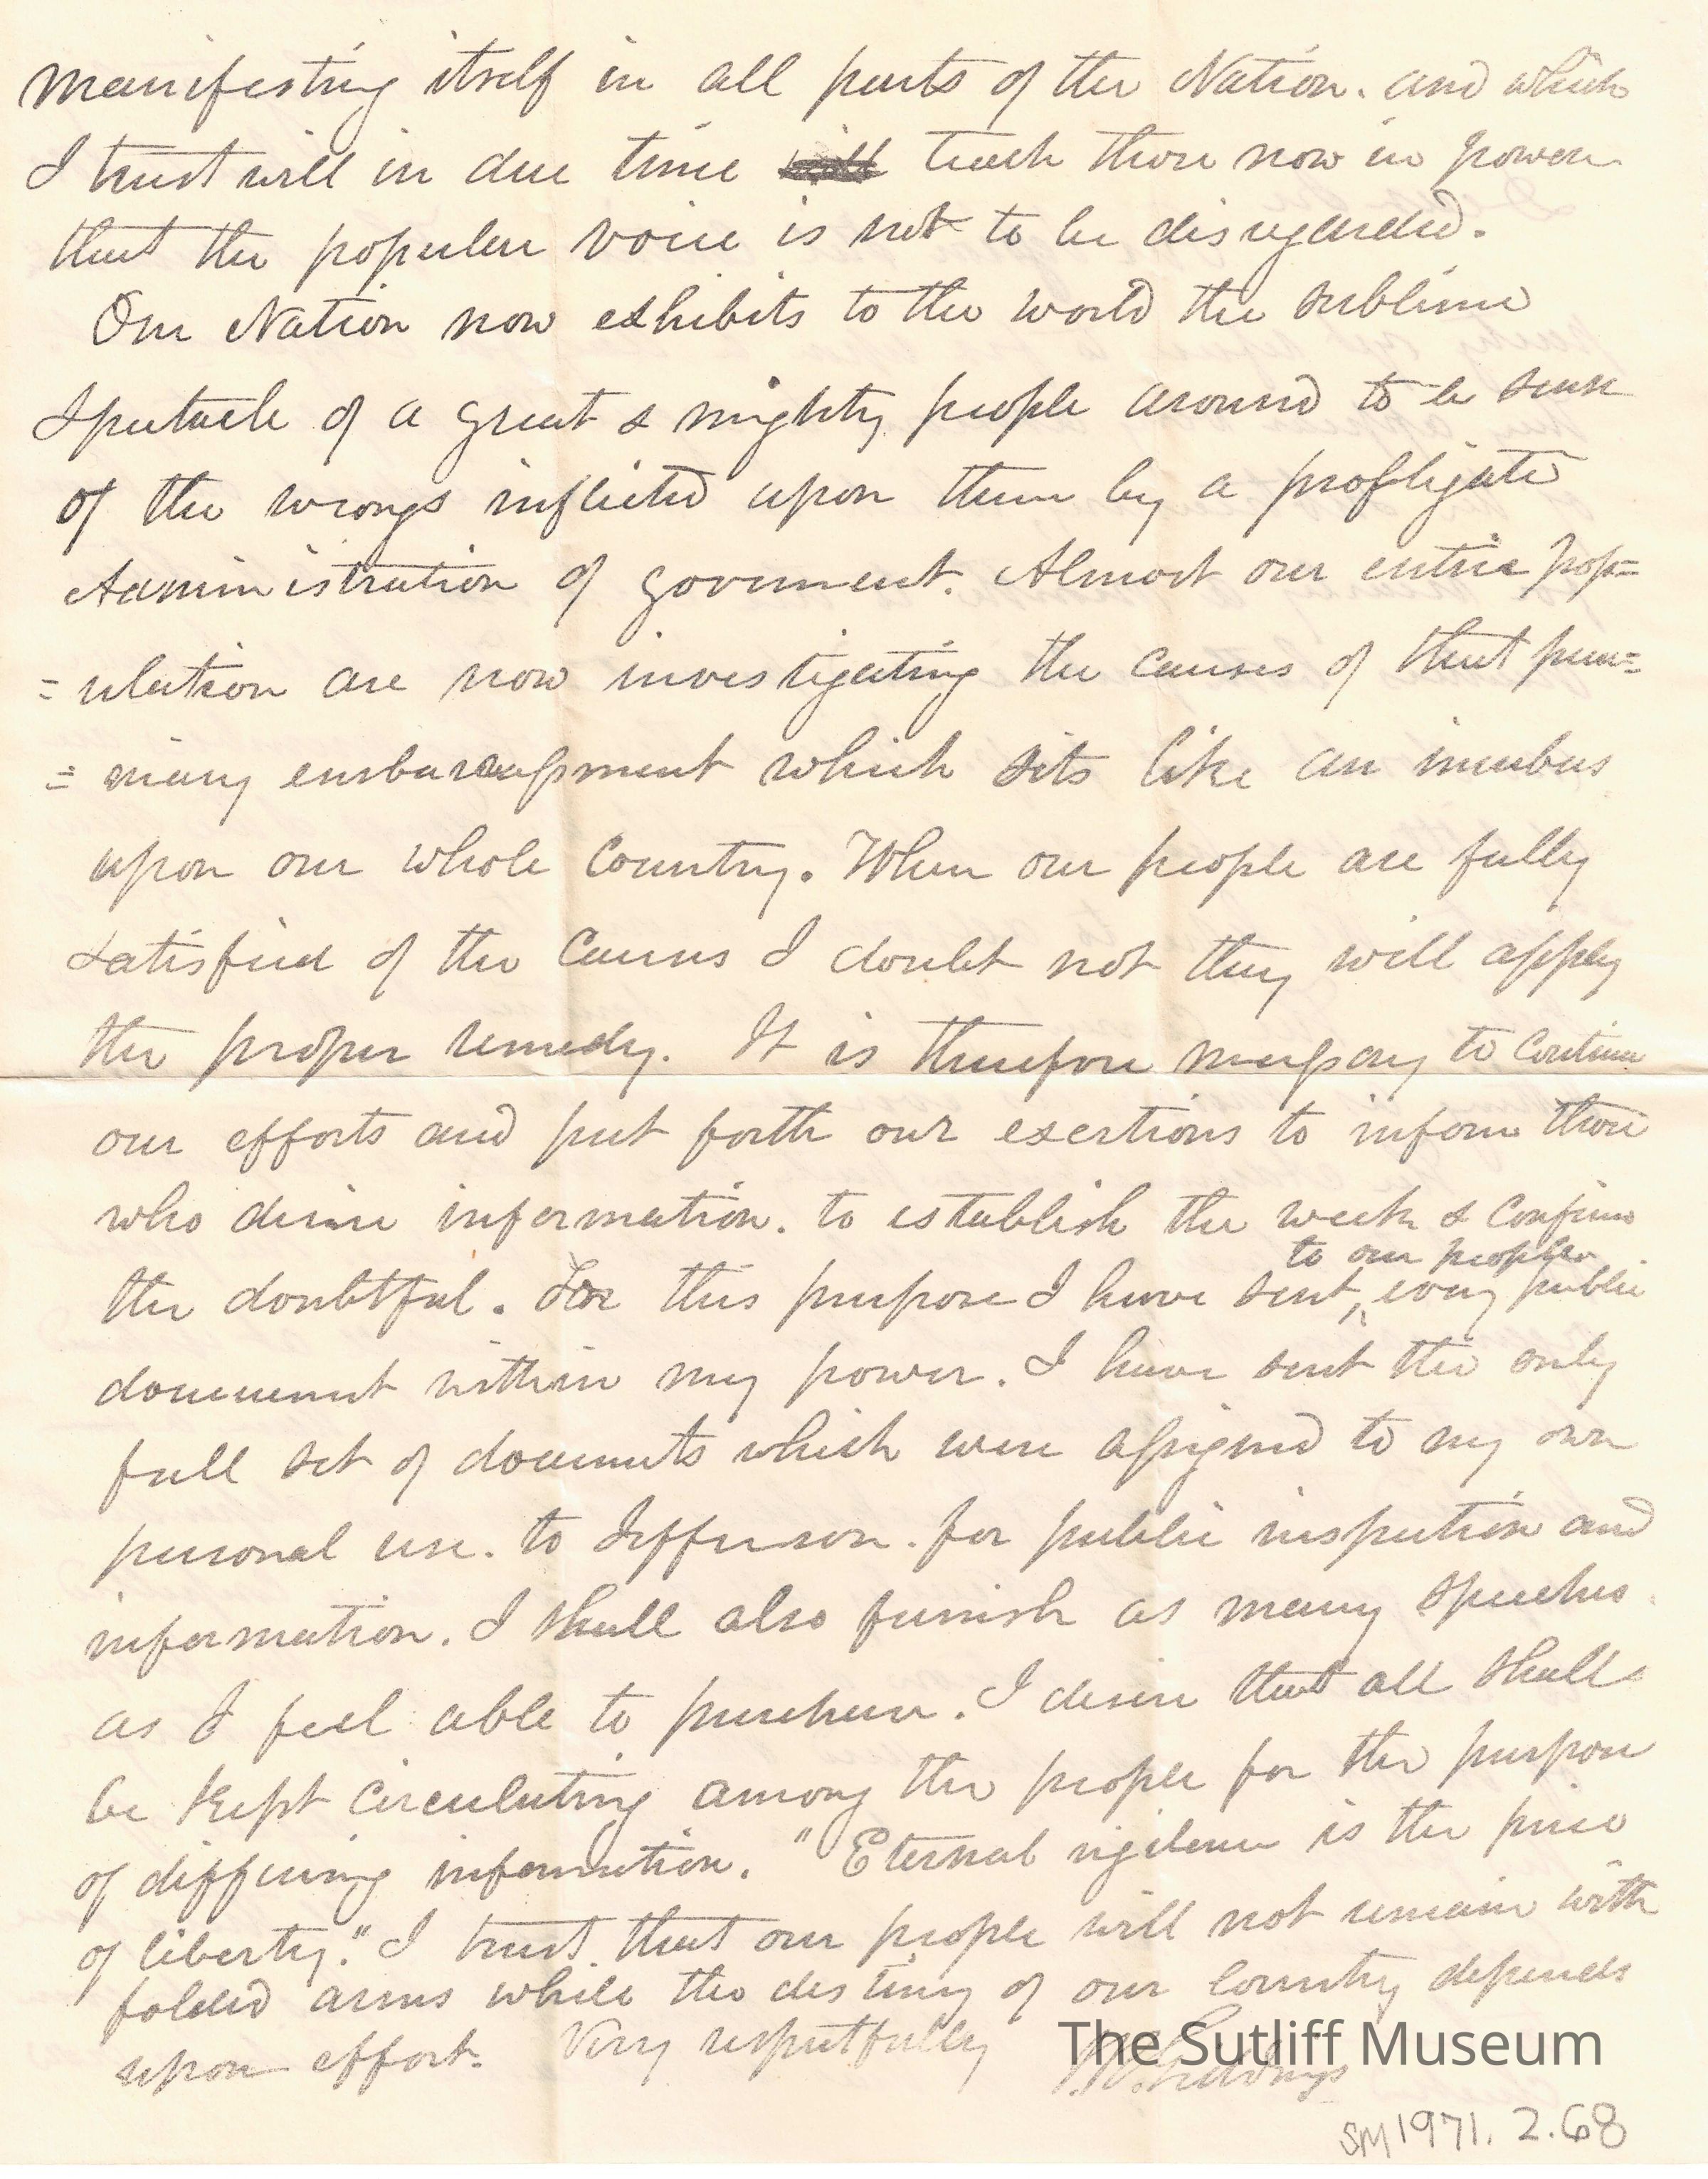 manifesting itself in all parts of the Nation. and which
I trust will in due time teach those now in power
that the popular voice is not to be disregarded.
Our Nation now exhibits to the world the sublime
spectacle of a great & mighty people aroused to a sense
of the wrongs inflicted upon them by a profligate
Administration of goverment. Almost our entire pop=
=ulation are now investigating the causes of that pecu=
=niary embarrassment which sits like an incubus
upon our whole Country. When our people are fully
satisfied of the Causes I doubt not they will apply
the proper remedy. It is therefore necessary to continue
our efforts and put forth our exertions to inform those
who desire information. to establish the weak & confirm
to our people
the doubtful. For this purpose I have sent ^ every public
document within my power. I have sent the only
full set of documents which were assigned to my own
personal use. to Jefferson. for public inspection and
information. I shall also furnish as many speeches
as I feel able to purchase. I desire that all shall
be kept circulating among the people for the purpose
of diffusing information. "Eternal vigilence is the price
of liberty." I trust that our people will not remain with
folded arms while the destiny of our Country depends
upon effort. Very respectfully
J.R. Giddings
The Sutliff Museum
SM1971.2.68